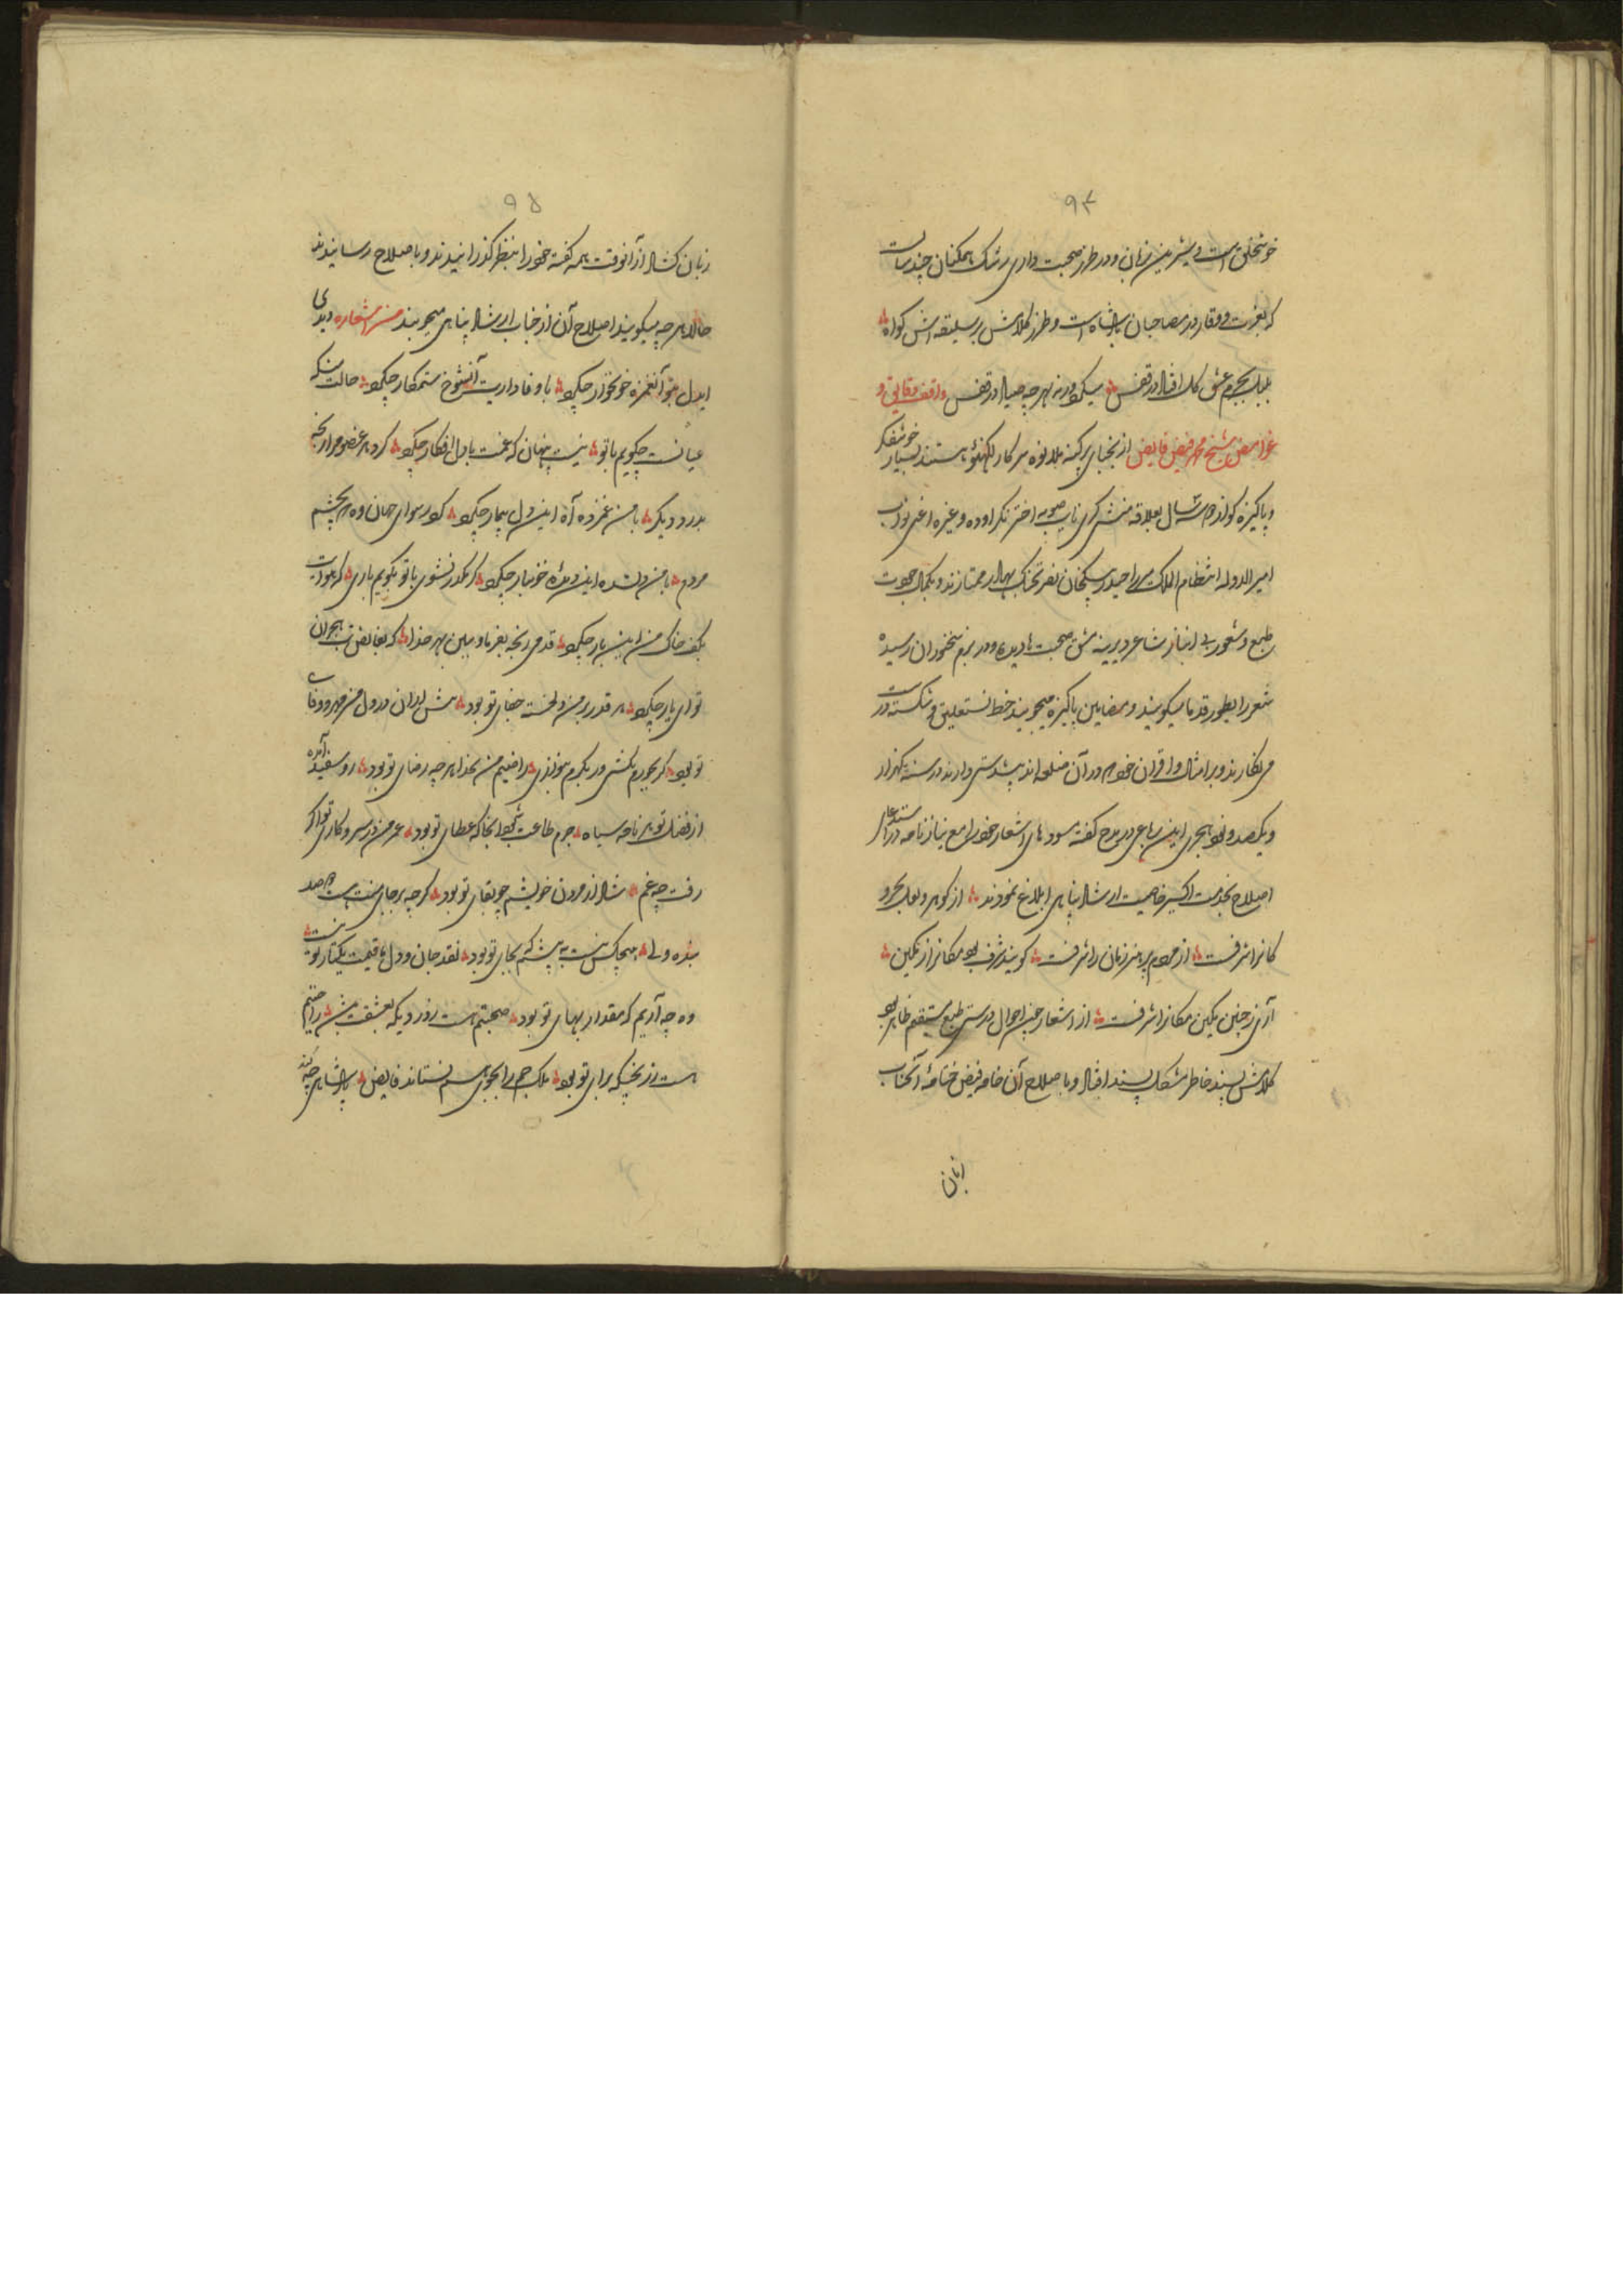 ۹۴
خوشخلق است و شیرین زبان و در طرز صحبت داری رشک همگنان چند سالست
که بعزت و وقار در مصاحبان پادشاه است و طرز کلامش بر سلیقه اش گواه
بلبل بجرم عشق گل افتاد در قفس میکرد ورنه بهر چه صیاد در قفس واقف دقایق و
غوامض شیخ محمد فیض فایض از نجبای پرگنه ملانوه سرکار لکهنؤ هستند بسیار خوشفکر
و پاکیزه گو از ده سال بعلاقه منشی گری نایب صوبه اختر نگر اوده وغیره اعنی نواب
امیر الدوله انتظام الملک میرزا حیدر بیگخان نصرتجنگ بهادر ممتازند و بکمال جودت
طبع و شعور بی انباز شاعر دیرینه مشق صحبت ها دیده و در بزم سخنوران رسیده
شعر را بطور قدما میگویند و مضامین پاکیزه میجویند خط نستعلیق و شکسته درست
می نگارند و بر امثال و اقران خود در آن پیشدستی دارند در سنه یکهزار
و یکصد و نود هجری این رباعی در مدح گفته مسوده های اشعار خود را مع نیاز نامه در استدعای
اصلاح بخدمت اکسیر خاصیت ارشاد پناهی ابلاغ نمودند از گوهر و لعل بحر و
کانرا شرفست از مردم پر هنر زمان را شرفست گویند شرف بود مکانرا ز مکین
آری ز چنین مکین مکانرا شرفست از اشعار حسن احوال درستی طبع مستقیم ظاهر بود
کلامش پسند خاطر مشکل پسند افتاد و باصلاح آن خامه فیض ختامهٔ آنجناب
زبان
۹۵
زبان کشاد از آنوقت همه گفته خود را بنظر گذرانیدند و باصلاح رسانیدند
حالا هر چه میگویند اصلاح آن از جناب ارشاد پناهی میجویند من اشعاره دیدی
ایدل بتو آن غمزه خونخوار چکرد با وفاداریت آن شوخ ستمگار چکرد حالت منکه
عیانست چگویم با تو نیست پنهان که غمت با دل افگار چکرد کرد هر عضو مرا رنجه
بدرد دیگر با من غمزده آه این دل بیمار چکرد کرد رسوای جهان و ه بچشم
مردم با من دلشده این دیدهٔ خونبار چکرد گر مکدر نشوی با تو بگویم باری که هوایت
بکف خاک من این بار چکرد قدمی رنجه بفرما و ببین بهر خدا که بفایض تب هجران
تو ای یار چکرد هر قدر بر من دلخسته جفای تو بود بیش از ان در دل من مهر و وفای
تو بود گر بجورم بکشی ور بکرم بنوازی راضیم من بخدا هر چه رضای تو بود رو سفید آمده
از فضل تو هر نامه سیاه جرم طاعت شود آنجا که عطای تو بود عمر من در سر و کار تو اگر
رفت چه غم شاد از مردن خویشم چو بقای تو بود گر چه بر جای منت هست دو صد
بنده ولی هیچکس نیست به پیشم که بجای تو بود نقد جان و دل ما قیمت یکتار تو نیست
وه چه آریم که مقدار بهای تو بود صحبتم هست روز دیکه بعشقت بیش راحتم
هست رنجیکه برای تو بود ملک جم را بجوی هم نستاند فایض پادشاهی چه کند